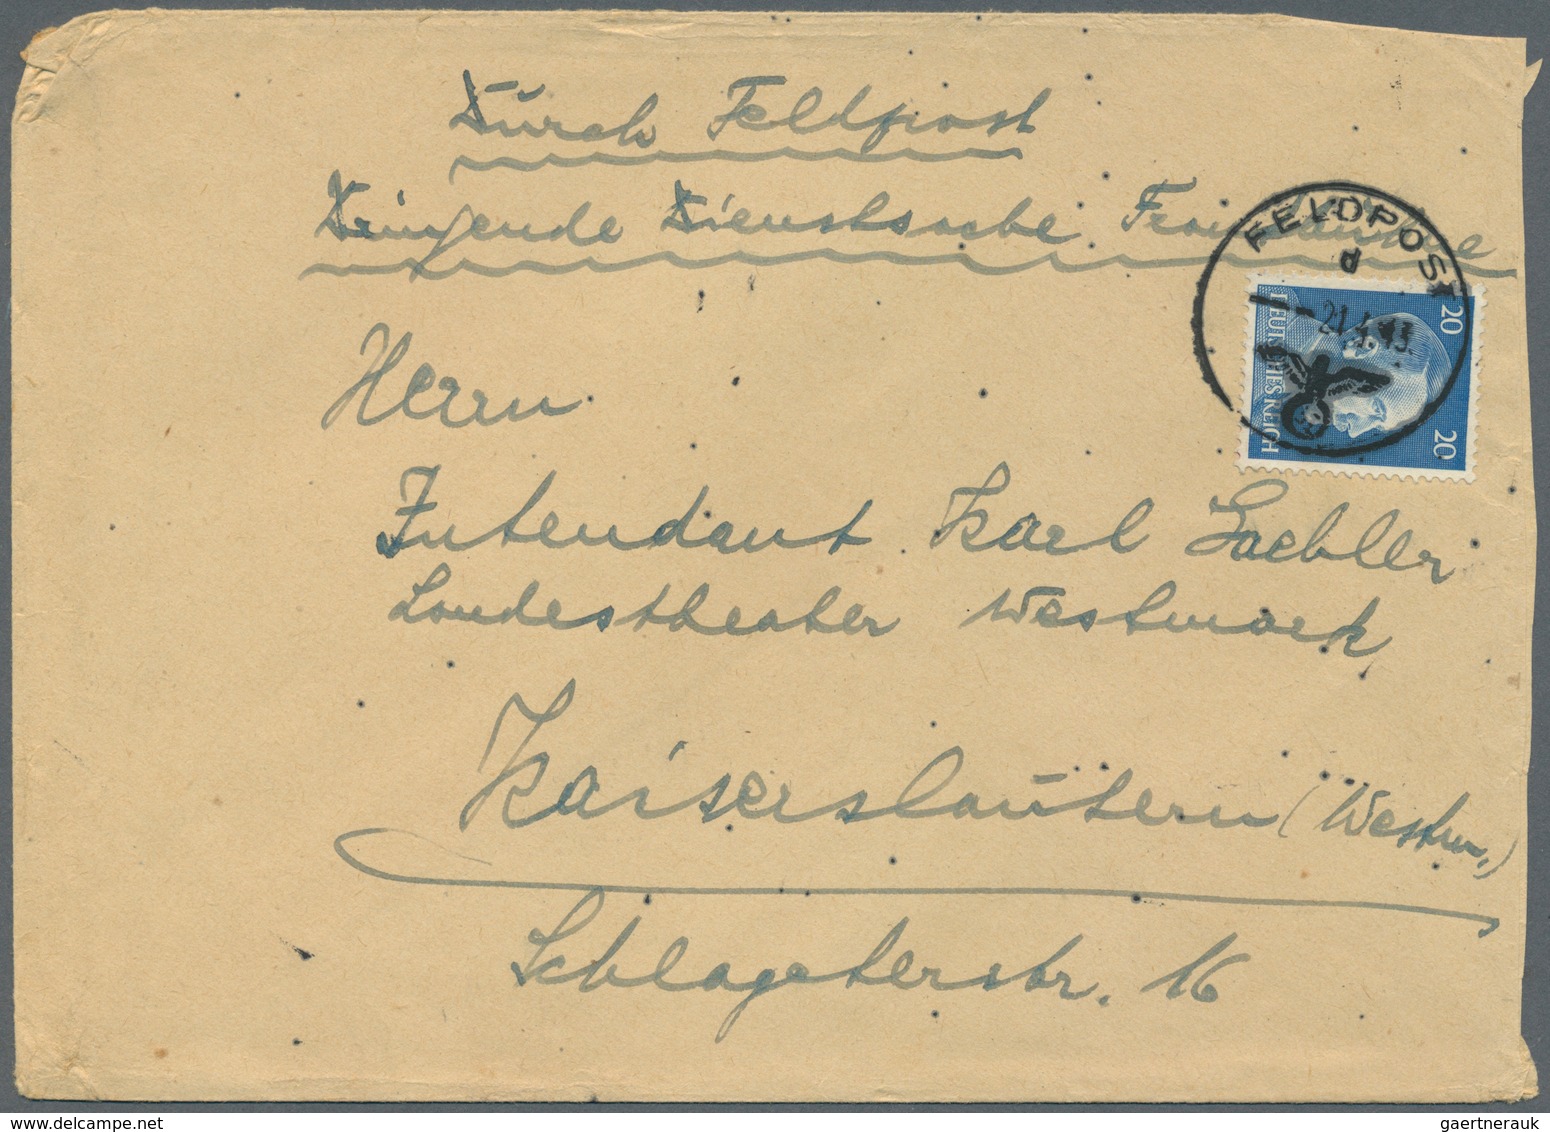 Durch Feldpost
Dringende Dienstsache
FELDPOST
d
-21.4.43.
20 20
DEUTSCHES REICH
Herrn
Intendant Karl Gaebler
Landestheater Westmark
Kaiserslautern (Westm.)
Schlageterstr. 16
gaertnerauk @ delcampe.net